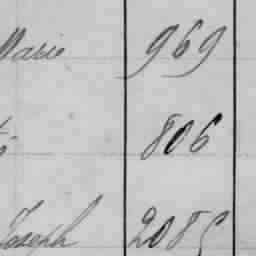 Marie 969
806
Joseph 2085